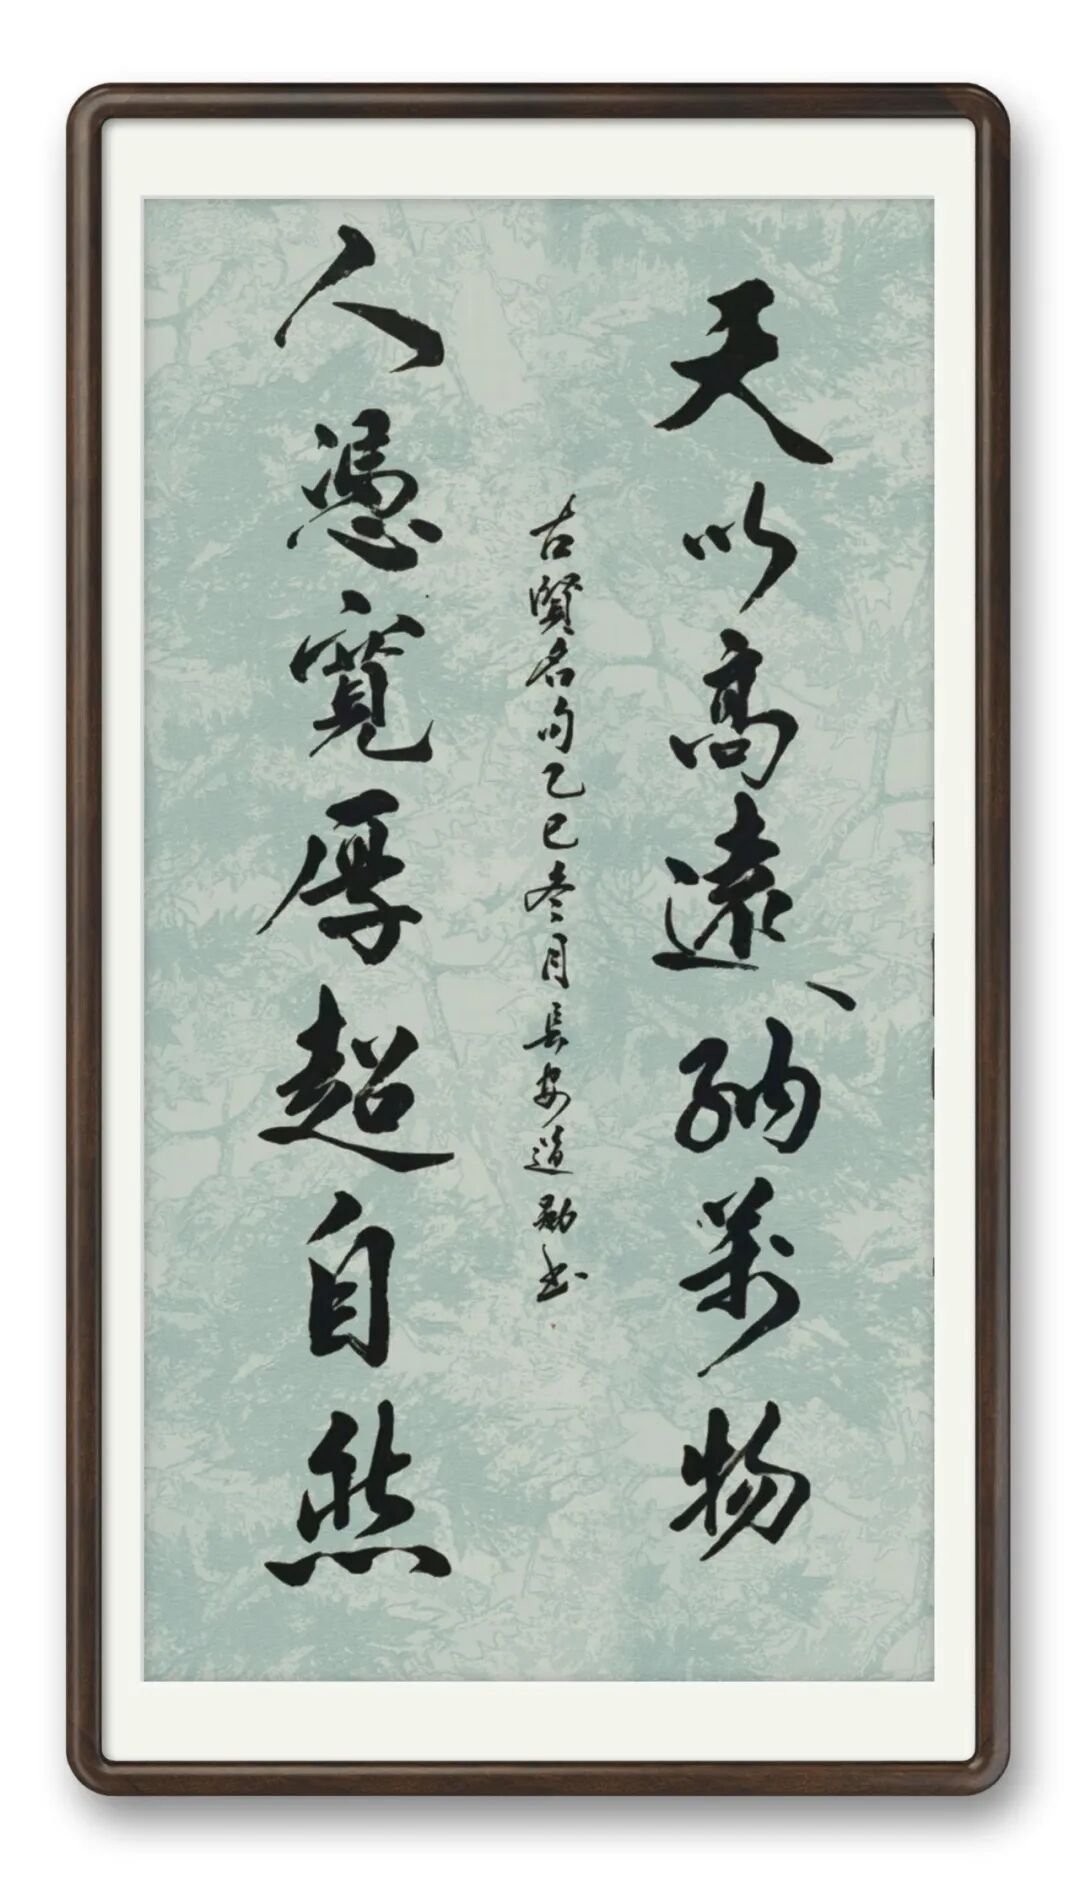 天以高遠納萬物
古賢名句乙巳冬月長安道勛书
人憑寬厚超自然